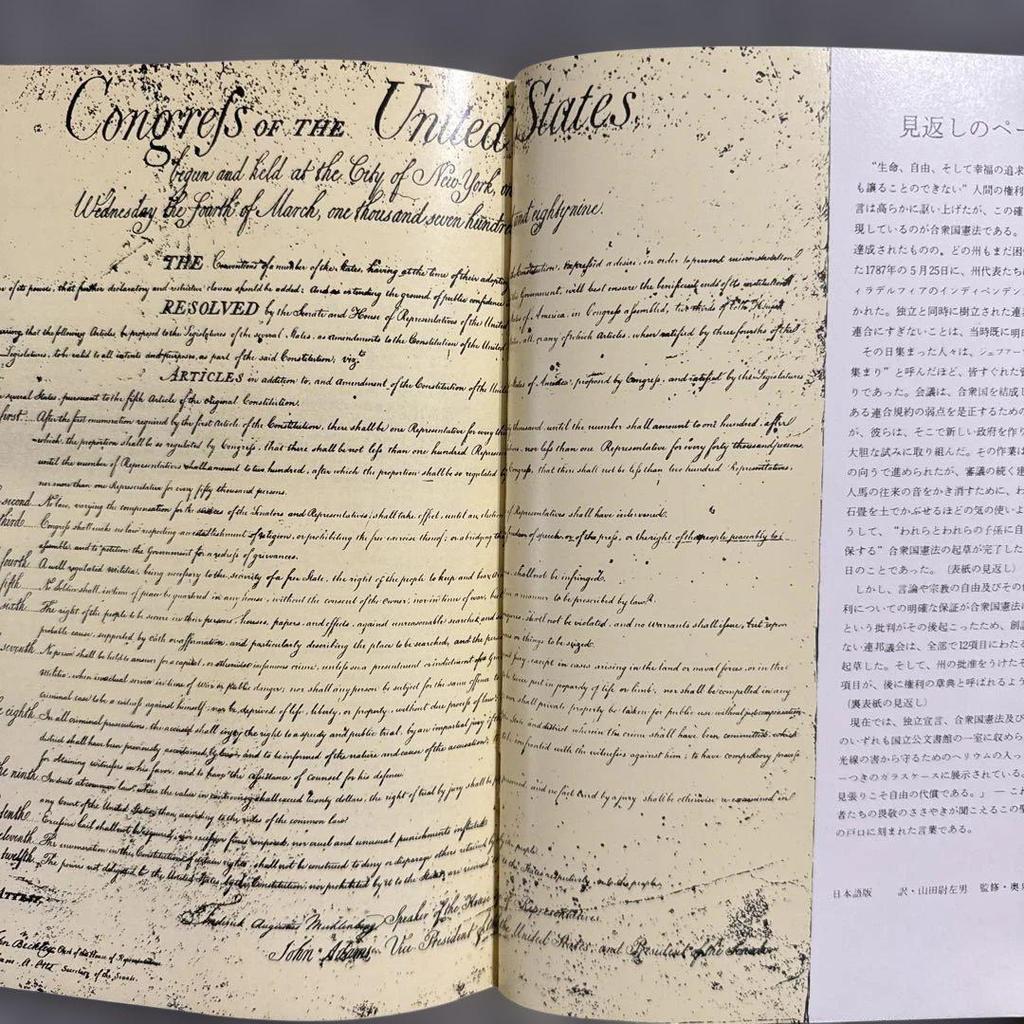 Congreſs OF THE United States,
begun and held at the City of New-York, on
Wednesday the fourth of March, one thousand seven hundred and eighty nine.
THE Conventions of a number of the States, having at the time of their adopting the Constitution, expreſsed a desire, in order to prevent misconstruction
of its powers, that further declaratory and restrictive clauses should be added: And as extending the ground of public confidence in the Government, will best ensure the beneficent ends of its institution
RESOLVED by the Senate and House of Representatives of the United States of America, in Congreſs aſsembled, two thirds of both Houses
that the following Articles be proposed to the Legislatures of the several States, as amendments to the Constitution of the United States, all, or any of which Articles, when ratified by three fourths of the
Legislatures, to be valid to all intents and purposes, as part of the said Constitution; viz.t
ARTICLES in addition to, and Amendment of the Constitution of the United States of America, proposed by Congreſs, and ratified by the Legislatures
several States, pursuant to the fifth Article of the original Constitution.
first... After the first enumeration required by the first Article of the Constitution, there shall be one Representative for every thirty thousand, until the number shall amount to one hundred, after
which, the proportion shall be so regulated by Congreſs, that there shall be not leſs than one hundred Representatives, nor leſs than one Representative for every forty thousand persons,
until the number of Representatives shall amount to two hundred, after which the proportion shall be so regulated by Congreſs, that there shall not be leſs than two hundred Representatives,
nor more than one Representative for every fifty thousand persons.
second... No law, varying the compensation for the services of the Senators and Representatives, shall take effect, until an election of Representatives shall have intervened.
third... Congreſs shall make no law respecting an establishment of religion, or prohibiting the free exercise thereof; or abridging the freedom of speech, or of the preſs, or the right of the people peaceably to
aſsemble, and to petition the Government for a redreſs of grievances.
fourth... A well regulated militia, being neceſsary to the security of a free State, the right of the people to keep and bear arms, shall not be infringed.
fifth... No Soldier shall, in time of peace be quartered in any house, without the consent of the owner, nor in time of war, but in a manner to be prescribed by law.
sixth... The right of the people to be secure in their persons, houses, papers, and effects, against unreasonable searches and seizures, shall not be violated, and no warrants shall iſsue, but upon
probable cause, supported by oath or affirmation, and particularly describing the place to be searched, and the persons or things to be seized.
seventh... No person shall be held to answer for a capital, or otherwise infamous crime, unleſs on a presentment or indictment of a Grand Jury, except in cases arising in the land or naval forces, or in the
militia, when in actual service in time of War or public danger; nor shall any person be subject for the same offence to be twice put in jeopardy of life or limb; nor shall be compelled in any
criminal case to be a witneſs against himself, nor be deprived of life, liberty, or property, without due proceſs of law; nor shall private property be taken for public use without just compensation.
eighth... In all criminal prosecutions, the accused shall enjoy the right to a speedy and public trial, by an impartial jury of the State and district wherein the crime shall have been committed, which
district shall have been previously ascertained by law, and to be informed of the nature and cause of the accusation; to be confronted with the witneſses against him; to have compulsory proceſs
for obtaining witneſses in his favor, and to have the aſsistance of counsel for his defence.
the ninth... In suits at common law, where the value in controversy shall exceed twenty dollars, the right of trial by jury shall be preserved, and no fact tried by a jury shall be otherwise re-examined in
any Court of the United States, than according to the rules of the common law.
tenth... Exceſsive bail shall not be required, nor exceſsive fines imposed, nor cruel and unusual punishments inflicted.
eleventh... The enumeration in the Constitution, of certain rights, shall not be construed to deny or disparage others retained by the people.
twelfth... The powers not delegated to the United States by the Constitution, nor prohibited by it to the States, are reserved to the States respectively, or to the people.
ATTEST,
Frederick Augustus Muhlenberg Speaker of the House of Representatives.
John Adams, Vice-President of the United States, and President of the Senate.
John Beckley, Clerk of the House of Representatives.
Sam. A. Otis Secretary of the Senate.
見返しのペー
"生命、自由、そして幸福の追求
も譲ることのできない"人間の権利
言は高らかに謳い上げたが、この確
現しているのが合衆国憲法である。
達成されたものの、どの州もまだ困
た1787年の5月25日に、州代表たち
ィラデルフィアのインディペンデン
かれた。独立と同時に樹立された連
連合にすぎないことは、当時既に明
その日集まった人々は、ジェファー
集まり"と呼んだほど、皆すぐれた
りであった。会議は、合衆国を結成
ある連合規約の弱点を是正するための
が、彼らは、そこで新しい政府を作り
大胆な試みに取り組んだ。その作業は
の向うで進められたが、審議の続く
人馬の往来の音をかき消すために、わ
石畳を土でかぶせるほどの気の使いよ
うして、"われらとわれらの子孫に自
保する"合衆国憲法の起草が完了した
日のことであった。(表紙の見返し)
しかし、言論や宗教の自由及びその
利についての明確な保証が合衆国憲法
という批判がその後起こったため、創
ない連邦議会は、全部で12項目にわた
起草した。そして、州の批准をうけた
項目が、後に権利の章典と呼ばれるよう
(裏表紙の見返し)
現在では、独立宣言、合衆国憲法及び
のいずれも国立公文書館の一室に収めら
光線の書から守るためのヘリウムの入っ
一つきのガラスケースに展示されている
見張りこそ自由の代償である。」― これ
者たちの畏敬のささやきが聞こえるこの
の戸口に刻まれた言葉である。
日本語版 訳・山田尉左男 監修・奥